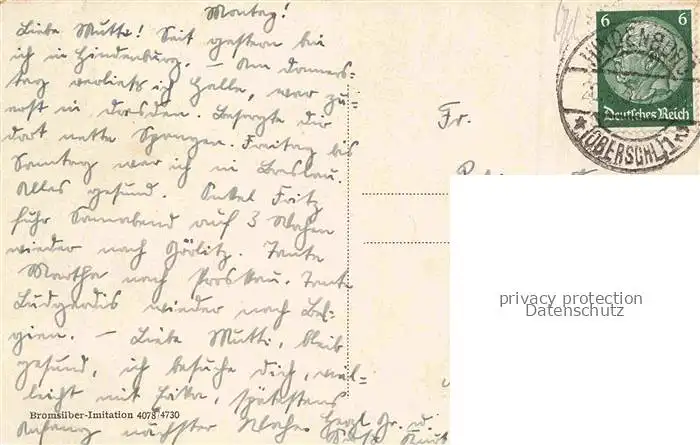 Montag!
Liebe Mutti! Seit gestern bin
ich in Hindenburg. – Am Donners-
tag verließ ich Halle, war zu-
erst in Dresden. Besorgte dir
dort nette Spangen. Freitag bis
Sonntag war ich in Breslau.
Alles gesund. Onkel Fritz
fuhr Sonnabend auf 3 Wochen
wieder nach Görlitz. Tante
Martha nach Proskau. Tante
Ludgardis wieder nach Bel-
gien. – Liebe Mutti, bleib
gesund, ich besuche dich, viel-
leicht mit Erika, spätestens
Anfang nächster Woche. Herzl. Gr. u.
Bromsilber-Imitation 4078/4730
Fr.
6 6
Deutsches Reich
HINDENBURG
(OBERSCHL) 1
privacy protection
Datenschutz